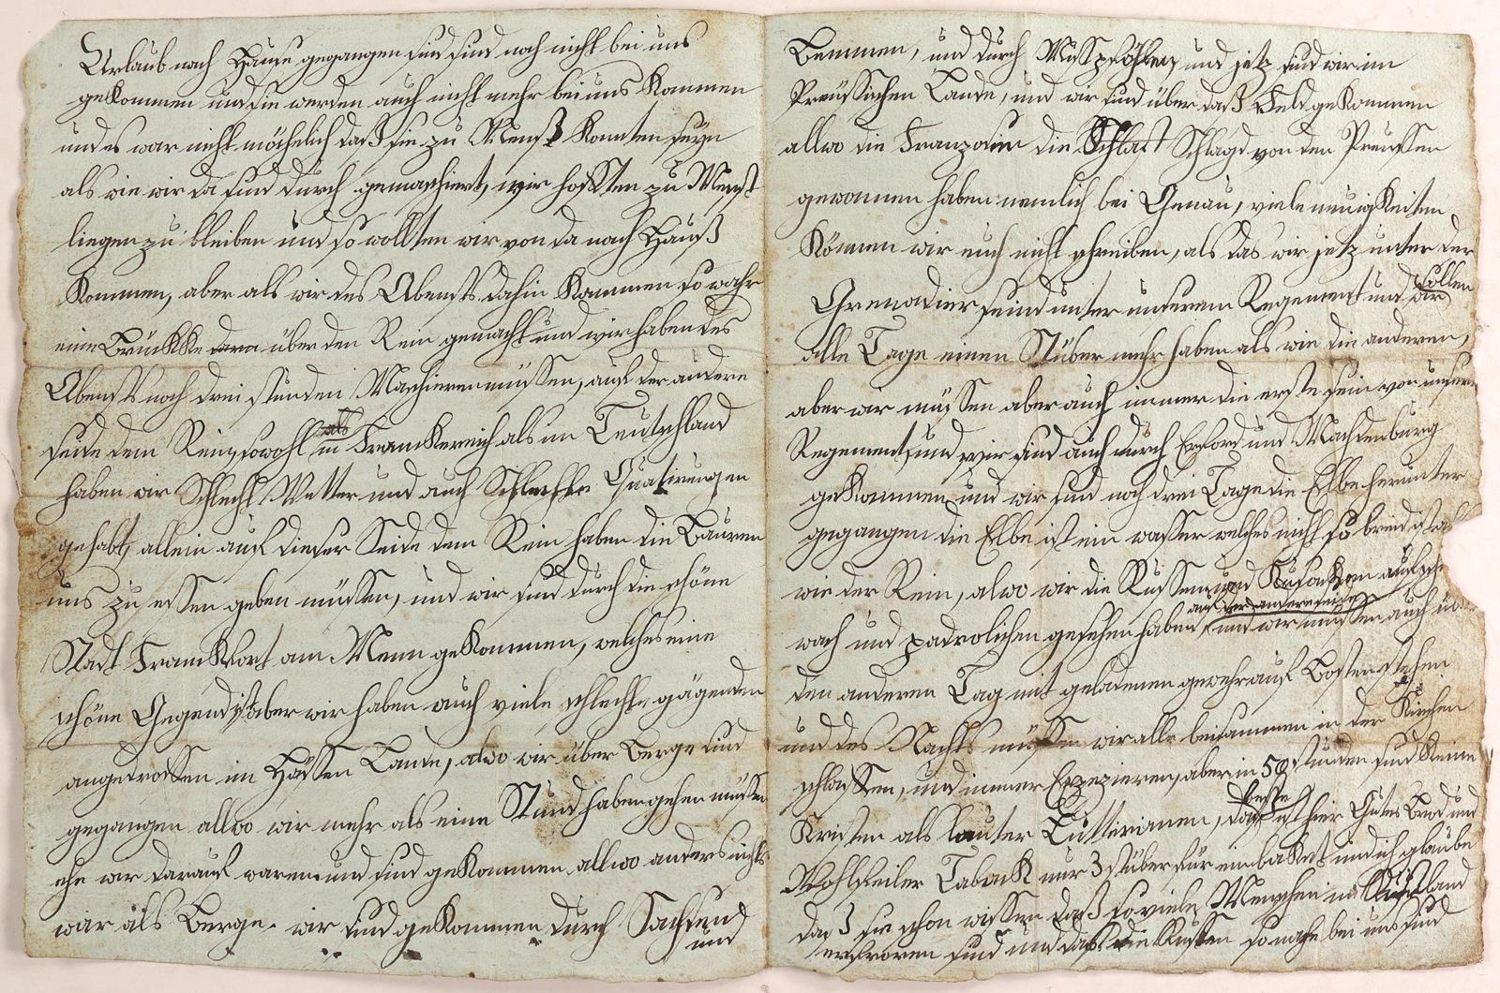 Urlaub nach Hause gegangen sind sind noch nicht bei uns
gekommen und sie werden auch nicht mehr bei uns Kommen
und es war nicht möchelich daß sie zu Menß Konnten seyn
als wie wir da sind durch gemarschiert, wir hofften zu Menß
liegen zu bleiben und so wollten wir von da nach Hauß
Kommen, aber als wir des Abents dahin Kammen so wahr
eine Brükke über den Rein gemacht und wir haben des
Abents noch drei stunden Maschieren müssen, auf der andere
seite dem Rein sowohl in Frankereich als im Teutschland
haben wir Schlecht Wetter und auch Schlechte Quatirungen
gehabt, allein auf dieser Seite dem Rein haben die Bauren
uns zu essen geben müssen, und wir sind durch die schöne
Stadt Frankfort am Menn gekommen, welches eine
schöne Gegend ist aber wir haben auch viele schlechte gägenden
angetroffen im Hässen Lande, alwo wir über Berge und
gegangen allwo wir mehr als eine Stund haben gehen müssen
ehe wir darauf waren und sind gekommen allwo anders nichts
war als Berge. wir sind gekommen durch Sachsen
und
Bemmen, und durch und jetz sind wir im
Preussischen Lande, und wir sind über daß Feld gekommen
allwo die Franzosen die Schlacht Schlagd von den Preussen
gewonnen haben nemlich bei Genau, viele neuigkeiten
Können wir euch nicht schreiben, als das wir jetz unter der
Grenadier seind unter unserem Regement und wir sollen
alle Tage einen Stüber mehr haben als wie die anderen,
aber wir müssen aber auch immer die erste sein von unserm
Regement, und wir sind auch durch Erford und Machdenburg
gekommen und wir sind noch drei Tage die Elbe herunter
gegangen die Elbe ist ein wasser welches nicht so breid ist als
wie der Rein, alwo wir die Russen und Kosacken auf sche
auf der andere seite
wach und padrolichen gesehen haben, und wir müssen auch
den anderen Tag mit geladenen gewehr auf Posten stehen
und des Nachts müssen wir alle beisammen in der Kirchen
schlaffen, und immer Exzezieren, aber in 50 stunden sind keine
Kristen als lauter Lutterianen, daß beste ist hier Gutes Brod und
Wohlfeiler Taback nur 3 stüber für ein backet und ich glaube
daß sie schon wissen daß so viele Menschen in Rusland
erfroren sind und daß die Russen so nahe bei uns sind